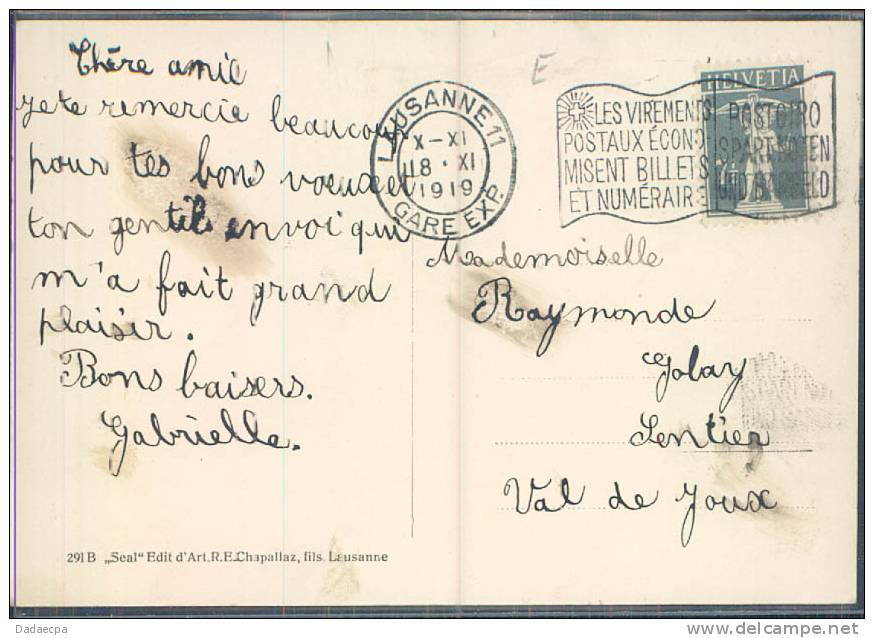 Chère amie
je te remercie beaucoup
pour tes bons voeux et
ton gentil envoi qui
m'a fait grand
plaisir.
Bons baisers.
Gabrielle.
E
LAUSANNE 11
X-XI
18·XI
1919
GARE EXP.
LES VIREMENTS
POSTAUX ÉCONO
MISENT BILLETS
ET NUMÉRAIRE
POSTGIRO
SPART NOTEN
UND BARGELD
HELVETIA
Mademoiselle
Raymonde
Golay
Sentier
Val de Joux
291 B „Seal“ Edit d'Art. R.E. Chapallaz, fils. Lausanne
Dadaecpa
delcampe.net